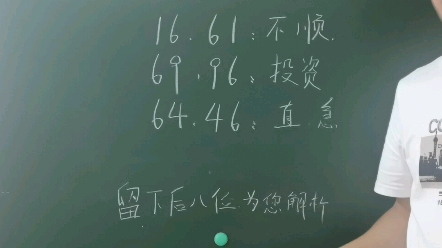 16.61:不顺.
69.96:投资
64.46:直.急
留下后八位.为您解析
CO